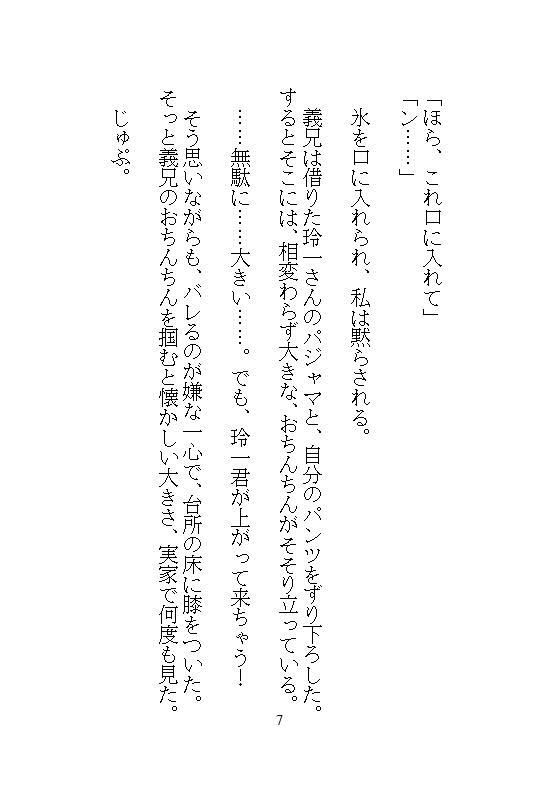 「ほら、これ口に入れて」
「ン……」
氷を口に入れられ、私は黙らされる。
義兄は借りた玲一さんのパジャマと、自分のパンツをずり下ろした。
するとそこには、相変わらず大きな、おちんちんがそそり立っている。
……無駄に……大きい……。でも、玲一君が上がって来ちゃう！
そう思いながらも、バレるのが嫌な一心で、台所の床に膝をついた。
そっと義兄のおちんちんを掴むと懐かしい大きさ、実家で何度も見た。
じゅぷ。
7